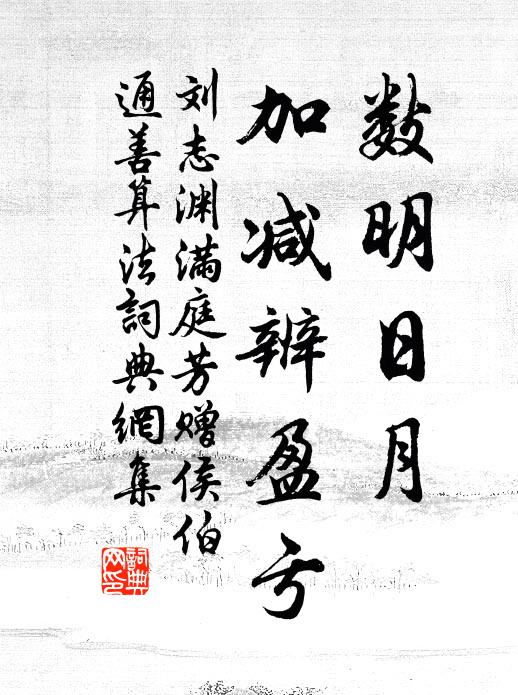 数明日月
加减辨盈亏
刘志渊满庭芳赠侯伯
通善算法詞典網集
詞典
网印